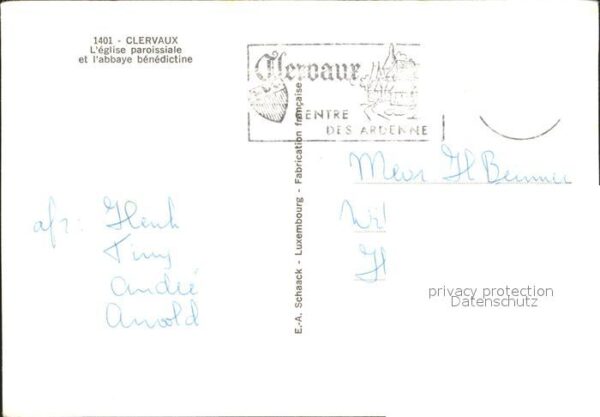 1401 - CLERVAUX
L'église paroissiale
et l'abbaye bénédictine
Clervaux
CENTRE
DES ARDENNE
E.-A. Schaack - Luxembourg - Fabrication française
afz: Henk
Tiny
André
Arnold
H
privacy protection
Datenschutz